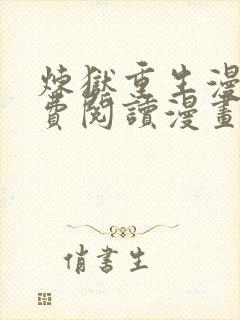 煉獄重生漫
費閱讀漫畫
俏書生